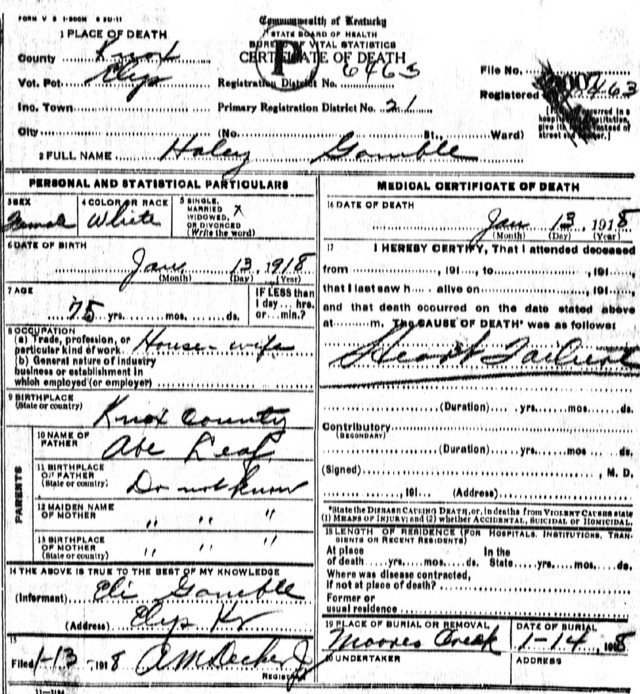 FORM V S 1-500M 8 2U-11
Commonwealth of Kentucky
STATE BOARD OF HEALTH
BUREAU VITAL STATISTICS
CERTIFICATE OF DEATH
1 PLACE OF DEATH
County Knox
Vot. Pct. Elys
Registration District No. 6463
File No.
Inc. Town
Primary Registration District No. 21
Registered 463
City (No. St., Ward)
2 FULL NAME Haley Gamble
PERSONAL AND STATISTICAL PARTICULARS
3 SEX Female
4 COLOR OR RACE White
5 SINGLE, MARRIED X WIDOWED, OR DIVORCED (Write the word)
6 DATE OF BIRTH
Jan 13, 1918
(Month) (Day) (Year)
7 AGE
75 yrs. mos. ds.
IF LESS than 1 day hrs. or min.?
8 OCCUPATION
(a) Trade, profession, or particular kind of work House-wife
(b) General nature of industry
business or establishment in
which employed (or employer)
9 BIRTHPLACE
(State or country) Knox County
PARENTS
10 NAME OF FATHER Abe Leaf
11 BIRTHPLACE OF FATHER (State or country) Do not know
12 MAIDEN NAME OF MOTHER " " "
13 BIRTHPLACE OF MOTHER (State or country) " " "
14 THE ABOVE IS TRUE TO THE BEST OF MY KNOWLEDGE
(Informant) Eli Gamble
(Address) Elys Ky
15
Filed 1-13-1918 A M Decker Jr
REGISTRAR
11-3184
MEDICAL CERTIFICATE OF DEATH
16 DATE OF DEATH
Jan 13, 1918
(Month) (Day) (Year)
17 I HEREBY CERTIFY, That I attended deceased
from , 191 , to , 191 ,
that I last saw h alive on , 191 ,
and that death occurred on the date stated above
at m. The CAUSE OF DEATH* was as follows:
Heart Failure
(Duration) yrs. mos. ds.
Contributory
(SECONDARY)
(Duration) yrs. mos. ds.
(Signed) , M. D.
, 191 (Address)
*State the DISEASE CAUSING DEATH, or, in deaths from VIOLENT CAUSES state
(1) MEANS OF INJURY; and (2) whether ACCIDENTAL, SUICIDAL OR HOMICIDAL.
18 LENGTH OF RESIDENCE (FOR HOSPITALS, INSTITUTIONS, TRANSIENTS OR RECENT RESIDENTS)
At place of death yrs. mos. ds. In the State yrs. mos. ds.
Where was disease contracted,
if not at place of death?
Former or
usual residence
19 PLACE OF BURIAL OR REMOVAL
Moores Creek
DATE OF BURIAL
1-14 1918
20 UNDERTAKER
ADDRESS